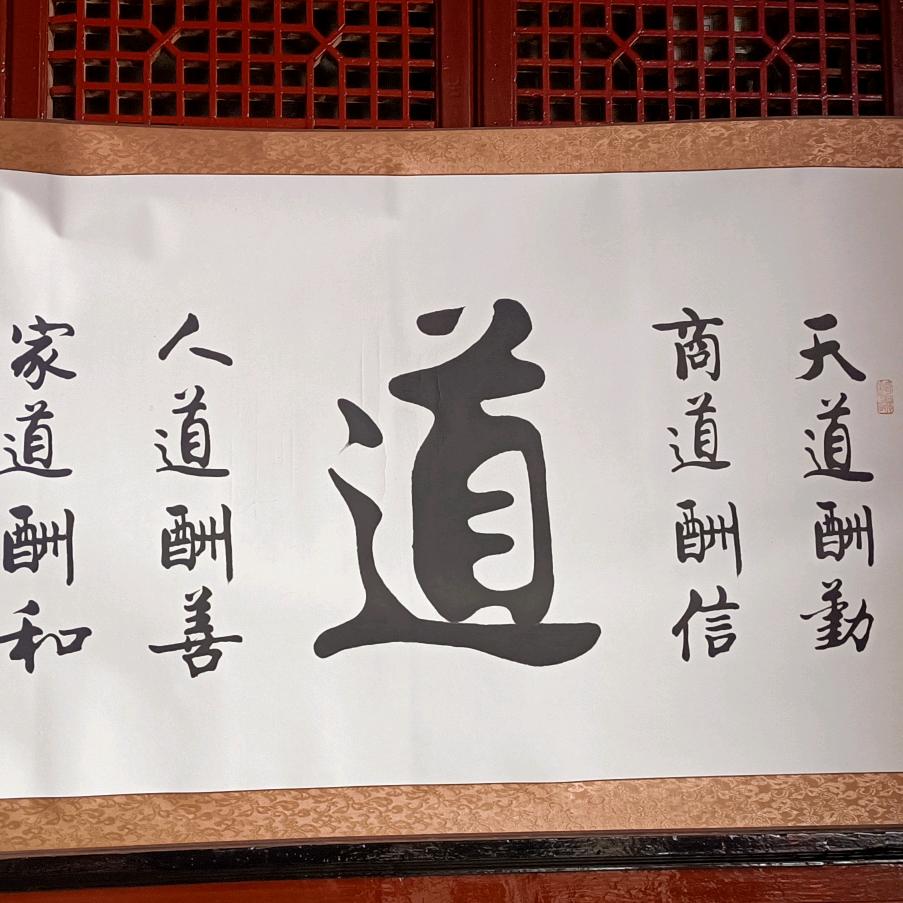 天道酬勤
商道酬信
道
人道酬善
家道酬和